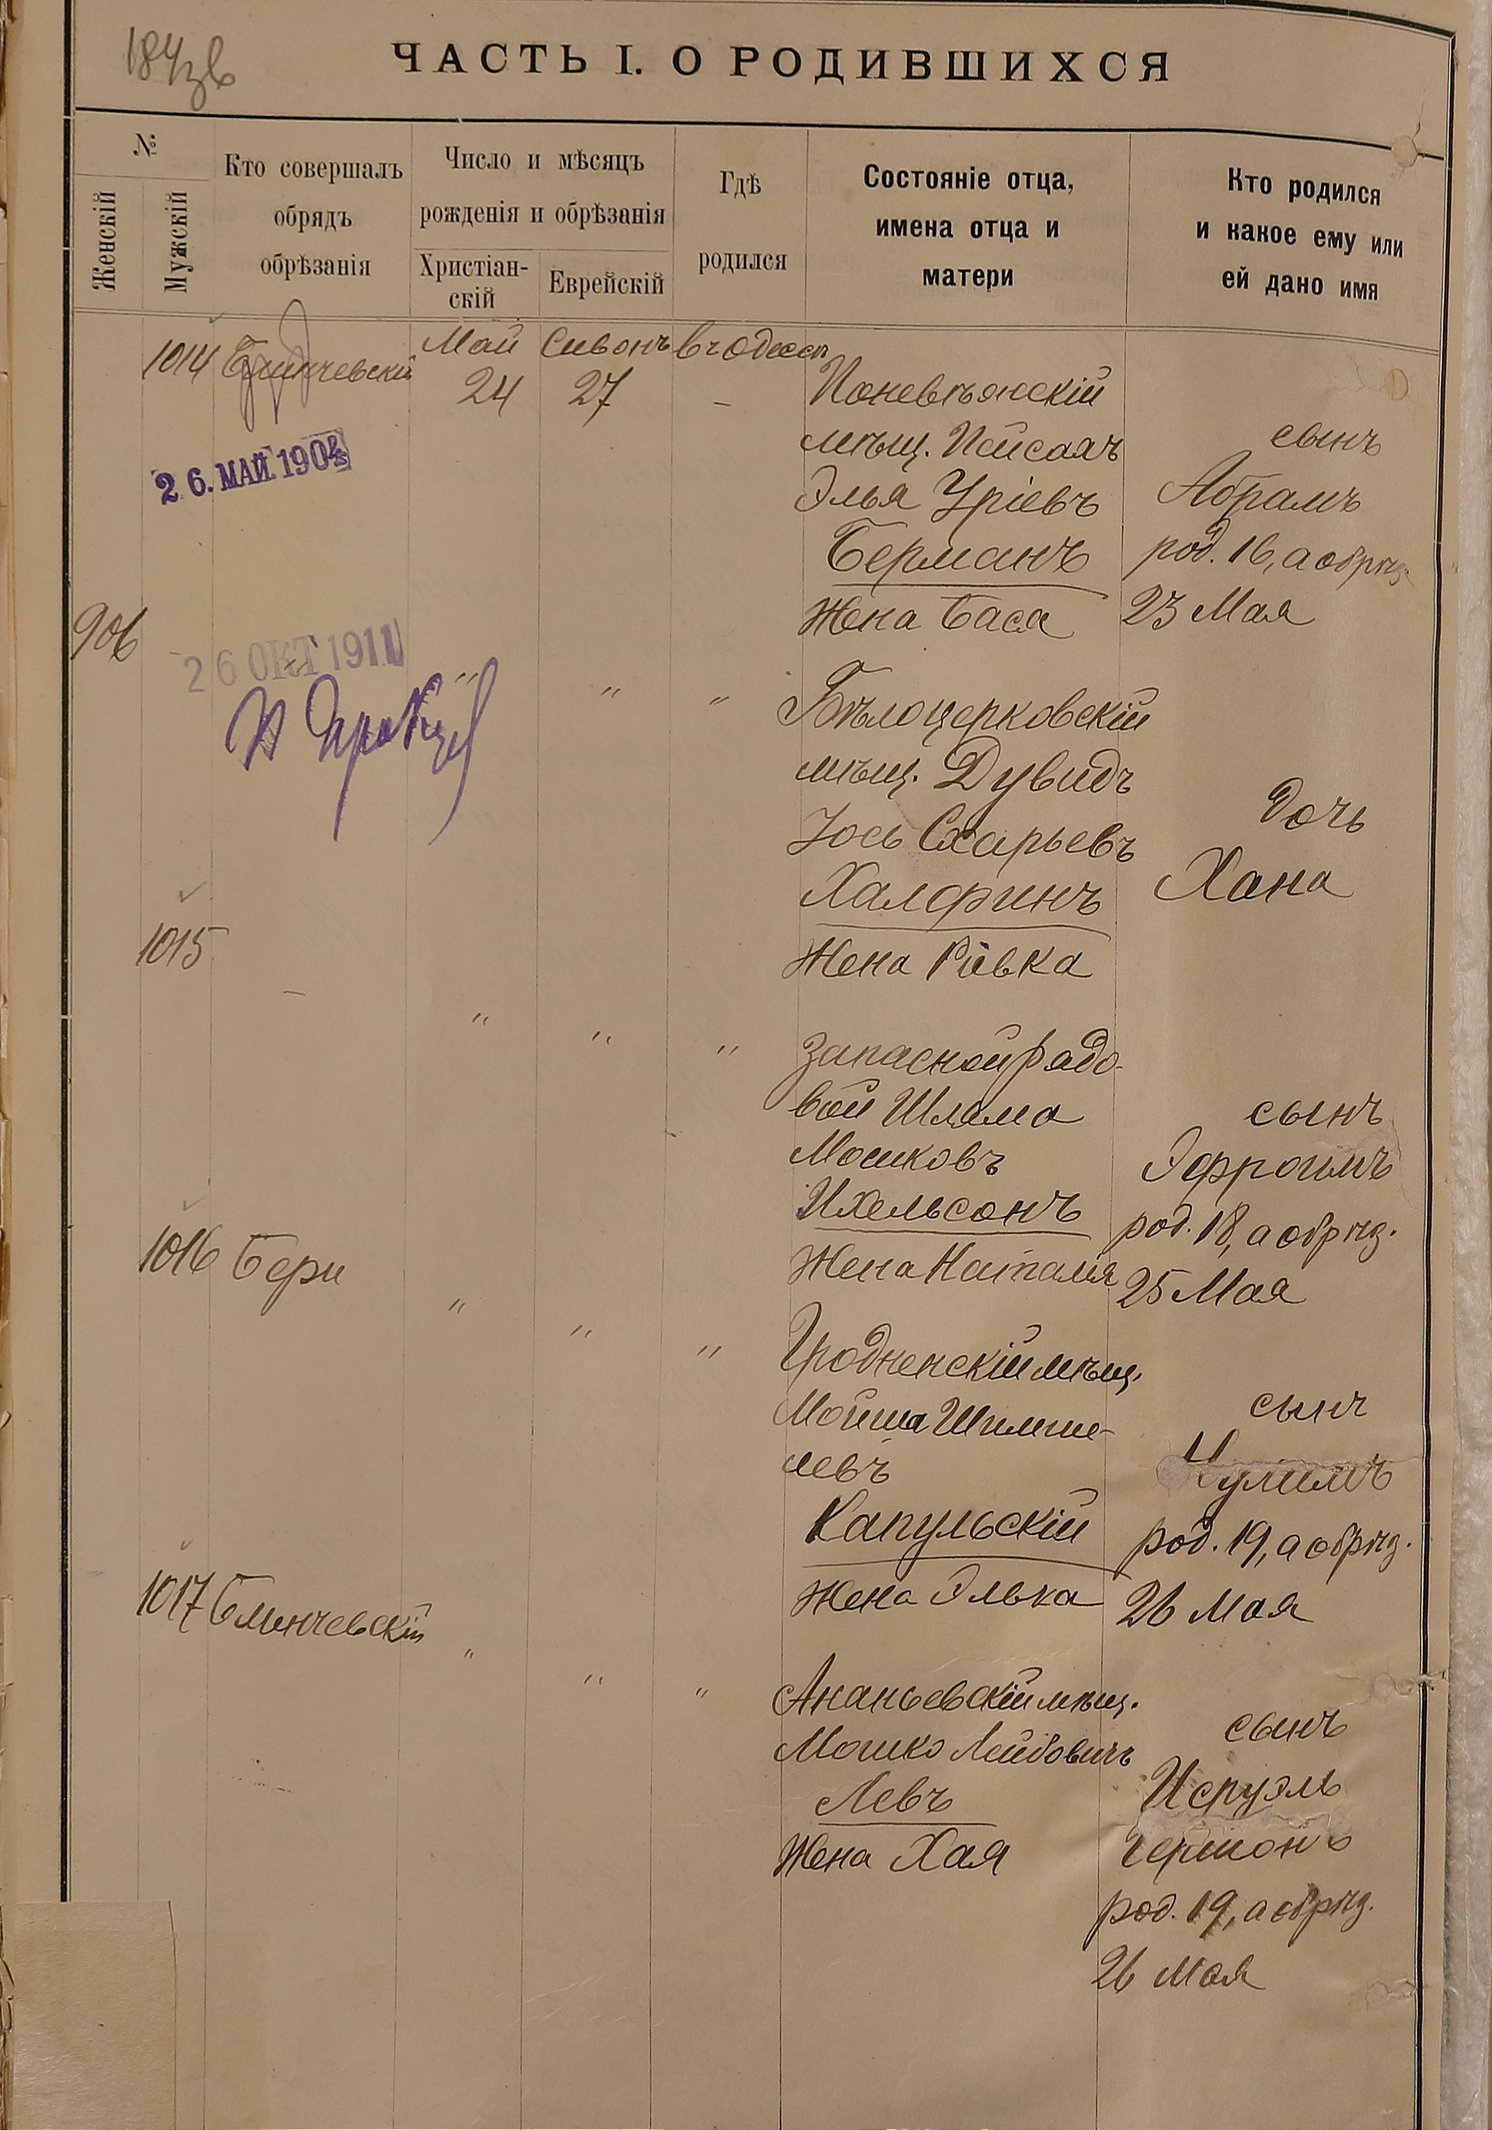 184 зв
ЧАСТЬ I. О РОДИВШИХСЯ
№
Женскій
Мужскій
Кто совершалъ
обрядъ
обрѣзанія
Число и мѣсяцъ
рожденія и обрѣзанія
Христіан-
скій
Еврейскій
Гдѣ
родился
Состояніе отца,
имена отца и
матери
Кто родился
и какое ему или
ей дано имя
1014 Блинчевскій
Май Сивонъ въ Одессѣ
24 27 –
26. МАЙ. 1904
Поневѣжскій
мѣщ. Пейсахъ
Элья Уріевъ
Берманъ
Жена Бася
сынъ
Абрамъ
род. 16, а обрѣз.
23 Мая
906
26 ОКТ 1911
" " "
Бѣлоцерковскій
мѣщ. Дувидъ
Іось Схарьевъ
Халфинъ
Жена Ривка
дочь
Хана
1015
–
" " "
Запасной рядо-
вой Шлема
Мошковъ
Ихельсонъ
Жена Наталія
сынъ
Эфроимъ
род. 18, а обрѣз.
25 Мая
1016 Бери
" " "
Гродненскій мѣщ.
Мойша Шлиме-
левъ
Капульскій
Жена Элька
сынъ
род. 19, а обрѣз.
26 Мая
1017 Блинчевскій
" " "
Ананьевскій мѣщ.
Мошко Лейбовичъ
Левъ
Жена Хая
сынъ
Исруэль
Гершонъ
род. 19, а обрѣз.
26 Мая